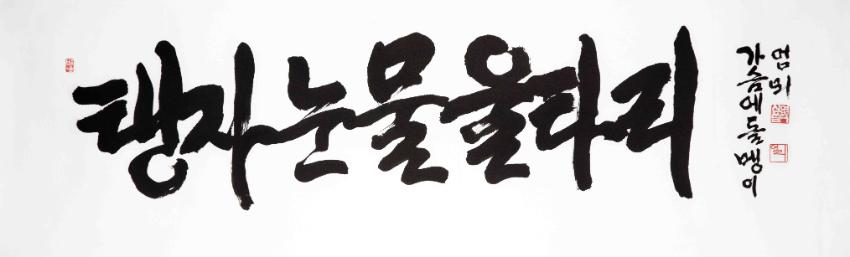 탱자눈물울타리
가슴에돌멩이